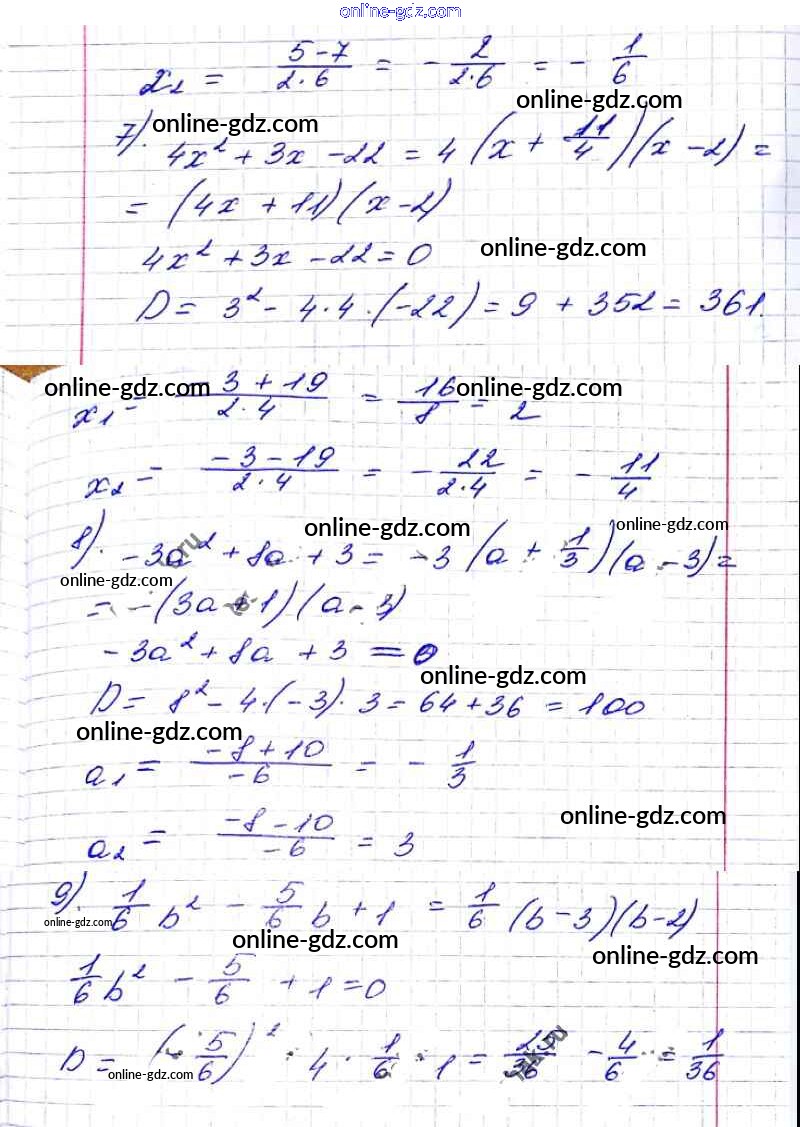 online-gdz.com
x₂ = (5-7)/(2·6) = - 2/(2·6) = - 1/6
online-gdz.com
7). online-gdz.com
4x² + 3x - 22 = 4 (x + 11/4)(x - 2) =
= (4x + 11)(x - 2)
4x² + 3x - 22 = 0 online-gdz.com
D = 3² - 4·4·(-22) = 9 + 352 = 361.
online-gdz.com online-gdz.com
x₁ = (-3 + 19)/(2·4) = 16/8 = 2
x₂ = (-3 - 19)/(2·4) = - 22/(2·4) = - 11/4
online-gdz.com online-gdz.com
8). -3a² + 8a + 3 = -3 (a + 1/3)(a - 3) =
online-gdz.com
= -(3a + 1)(a - 3)
-3a² + 8a + 3 = 0
online-gdz.com
D = 8² - 4·(-3)·3 = 64 + 36 = 100
online-gdz.com
a₁ = (-8 + 10)/(-6) = - 1/3
online-gdz.com
a₂ = (-8 - 10)/(-6) = 3
9). 1/6 b² - 5/6 b + 1 = 1/6 (b - 3)(b - 2)
online-gdz.com
online-gdz.com
online-gdz.com
1/6 b² - 5/6 + 1 = 0
D = (- 5/6)² - 4 · 1/6 · 1 = 25/36 - 4/6 = 1/36
online-gdz.com